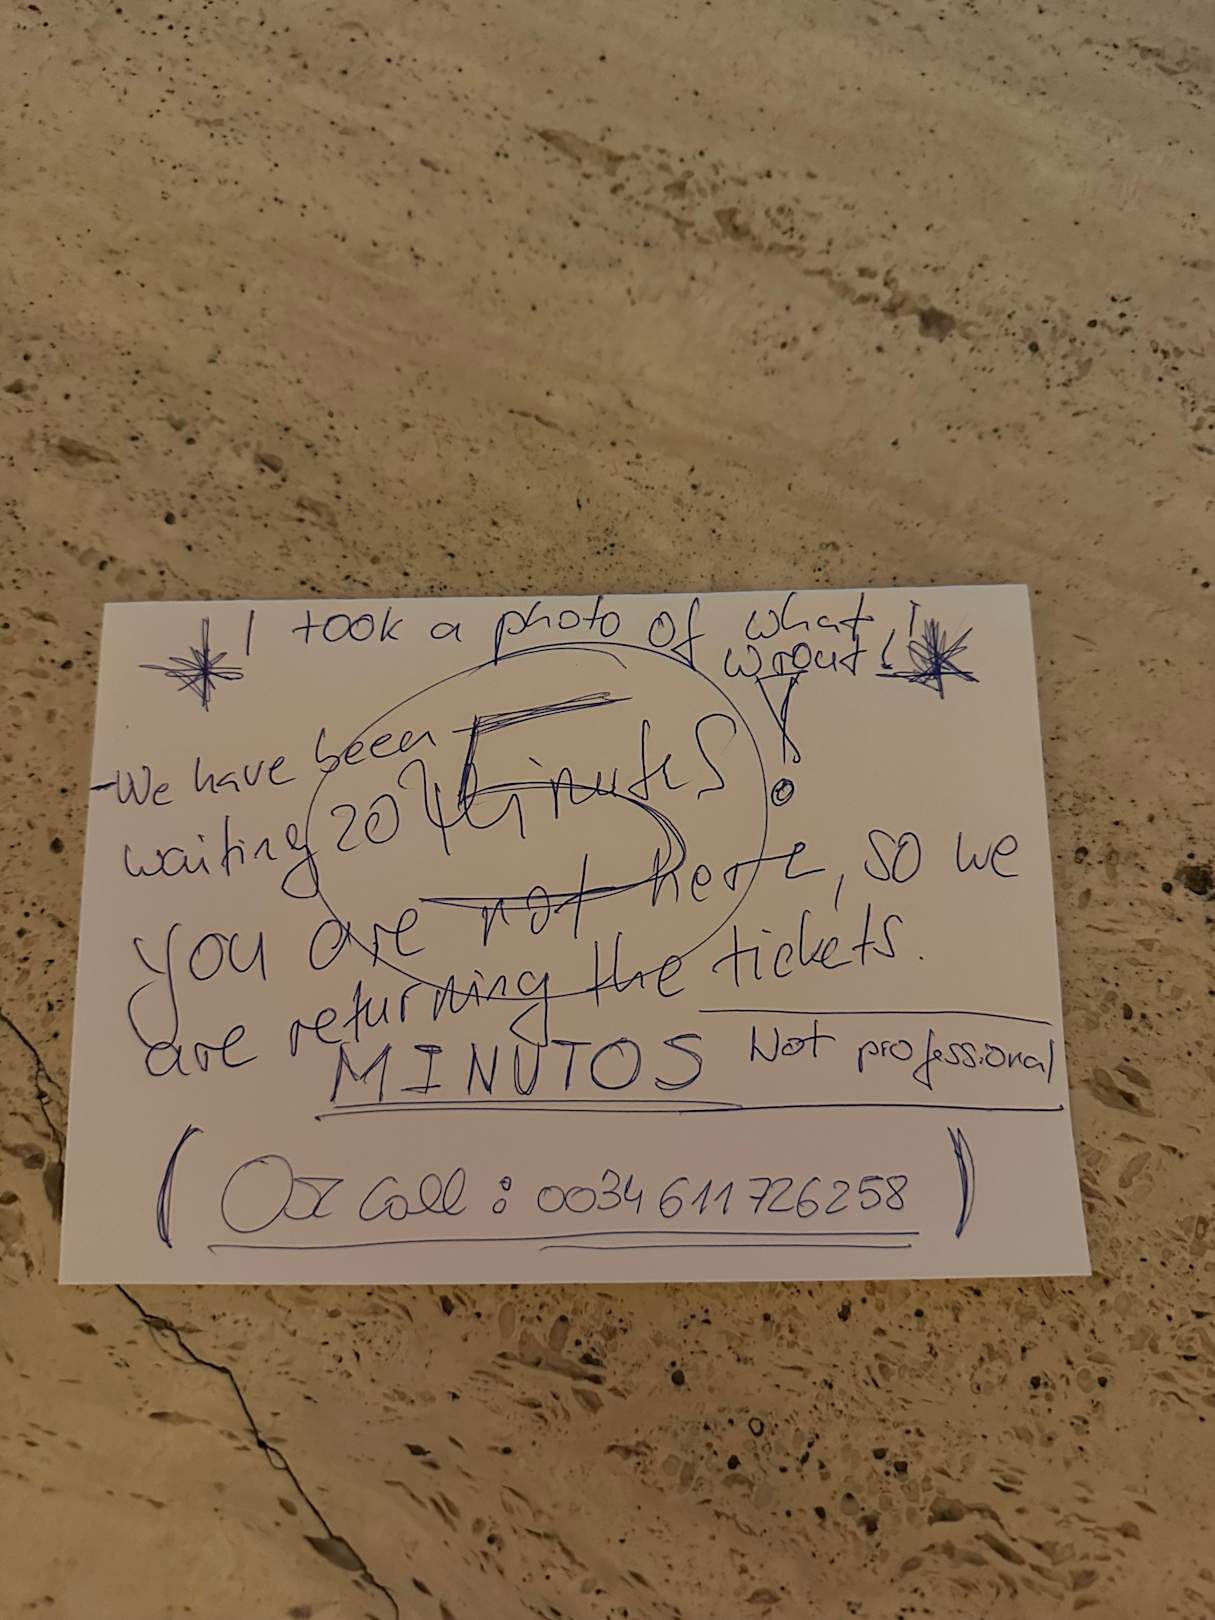 I took a photo of what I
wrout!
5
-We have been
waiting 20 Minutes
you are not here, so we
are returning the tickets.
MINUTOS
Not professional
(Or call: 0034 611 726258)